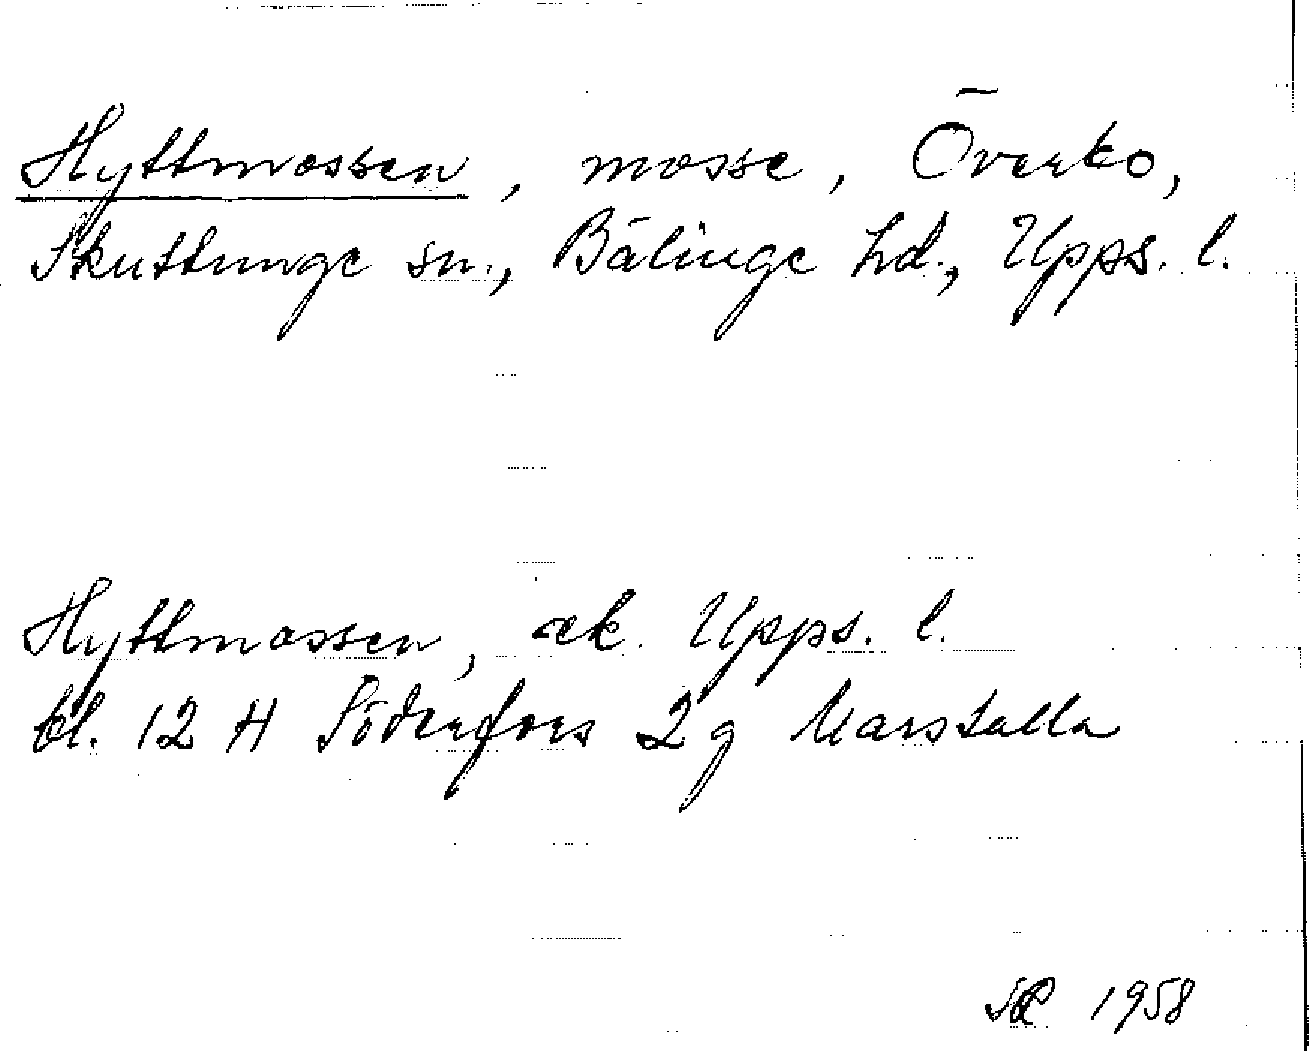 Hyttmossen, mosse, Överbo,
Skuttunge sn., Bälinge hd., Upps. l.
Hyttmossen, ek. Upps. l.
bl. 12 H Söderfors 2 g Marstalla
1958